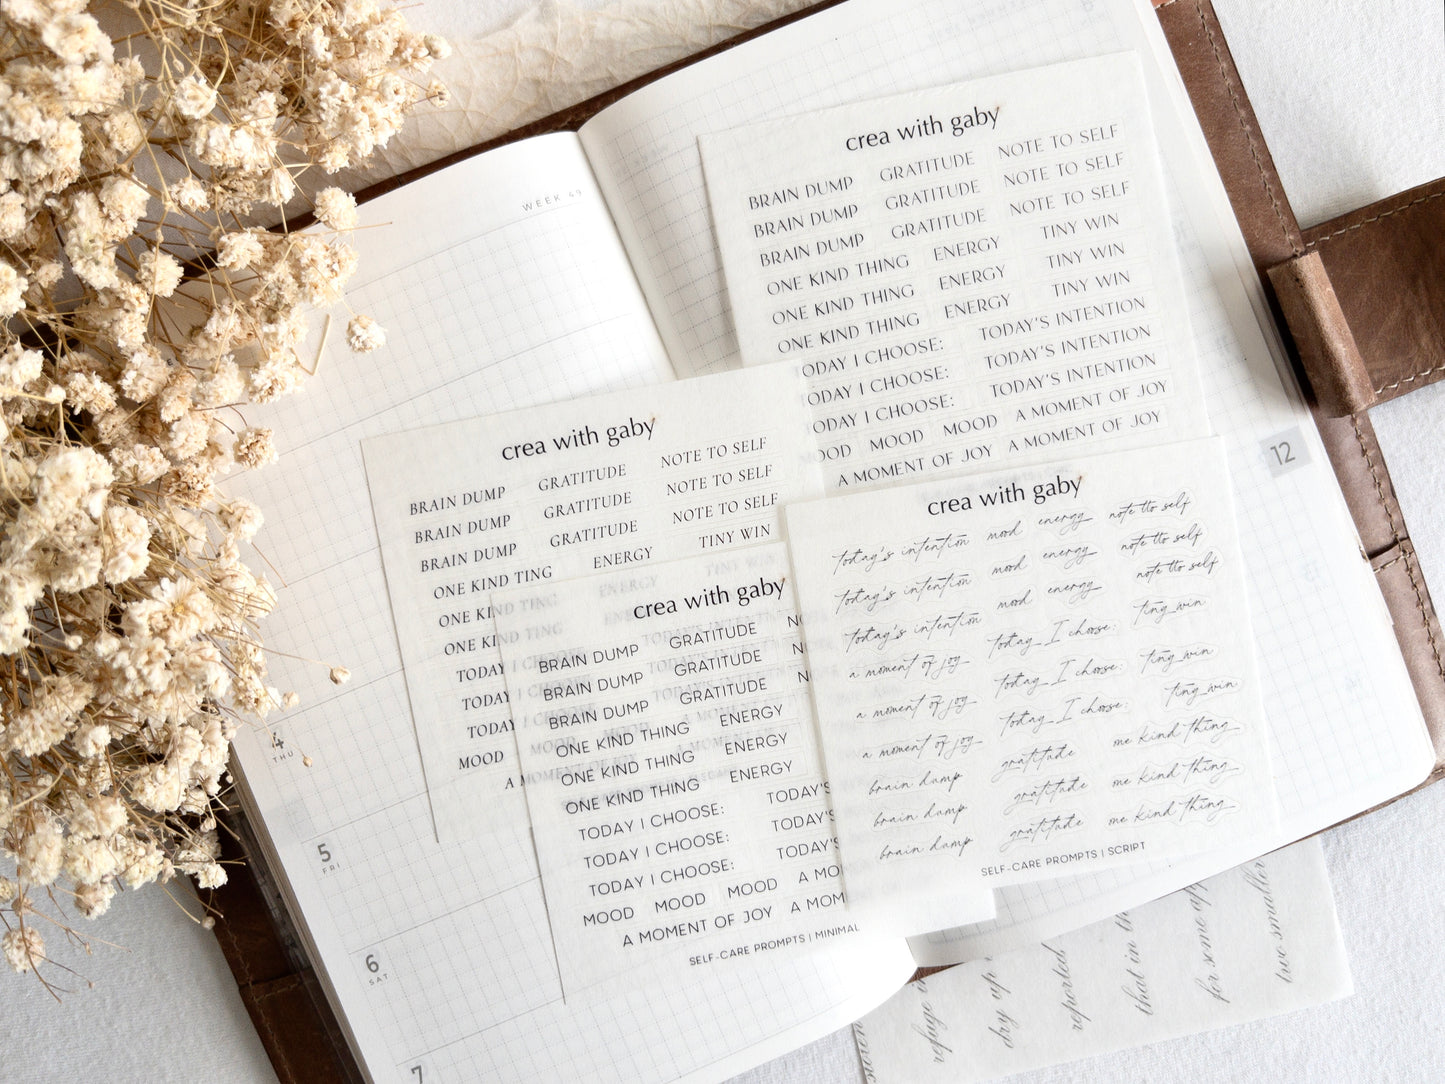 WEEK 49
4
THU
5
FRI
6
SAT
7
12
crea with gaby
BRAIN DUMP GRATITUDE NOTE TO SELF
BRAIN DUMP GRATITUDE NOTE TO SELF
BRAIN DUMP GRATITUDE NOTE TO SELF
ONE KIND THING ENERGY TINY WIN
ONE KIND THING ENERGY TINY WIN
ONE KIND THING ENERGY TINY WIN
TODAY I CHOOSE: TODAY'S INTENTION
TODAY I CHOOSE: TODAY'S INTENTION
TODAY I CHOOSE: TODAY'S INTENTION
MOOD MOOD MOOD A MOMENT OF JOY
A MOMENT OF JOY A MOMENT OF JOY
crea with gaby
BRAIN DUMP GRATITUDE NOTE TO SELF
BRAIN DUMP GRATITUDE NOTE TO SELF
BRAIN DUMP GRATITUDE NOTE TO SELF
ONE KIND TING ENERGY TINY WIN
ONE KIND TING ENERGY TINY WIN
ONE KIND TING
TODAY I CHOOSE TODAY'S INTENTION
TODAY I CHOOSE
TODAY I CHOOSE
MOOD MOOD MOOD A MOMENT
A MOMENT OF JOY
crea with gaby
BRAIN DUMP GRATITUDE NO
BRAIN DUMP GRATITUDE N
BRAIN DUMP GRATITUDE
ONE KIND THING ENERGY
ONE KIND THING ENERGY
ONE KIND THING ENERGY
TODAY I CHOOSE: TODAY'S
TODAY I CHOOSE: TODAY'S
TODAY I CHOOSE: TODAY'S
MOOD MOOD MOOD A MO
A MOMENT OF JOY A MOM
SELF-CARE PROMPTS | MINIMAL
crea with gaby
today's intention mood energy note tto self
today's intention mood energy note tto self
today's intention mood energy note tto self
a moment of joy today I choose: tiny win
a moment of joy today I choose: tiny win
a moment of joy today I choose: tiny win
brain dump gratitude one kind thing
brain dump gratitude one kind thing
brain dump gratitude one kind thing
SELF-CARE PROMPTS | SCRIPT
refuge in
dry up
reported
that in th
for some ap
two smaller